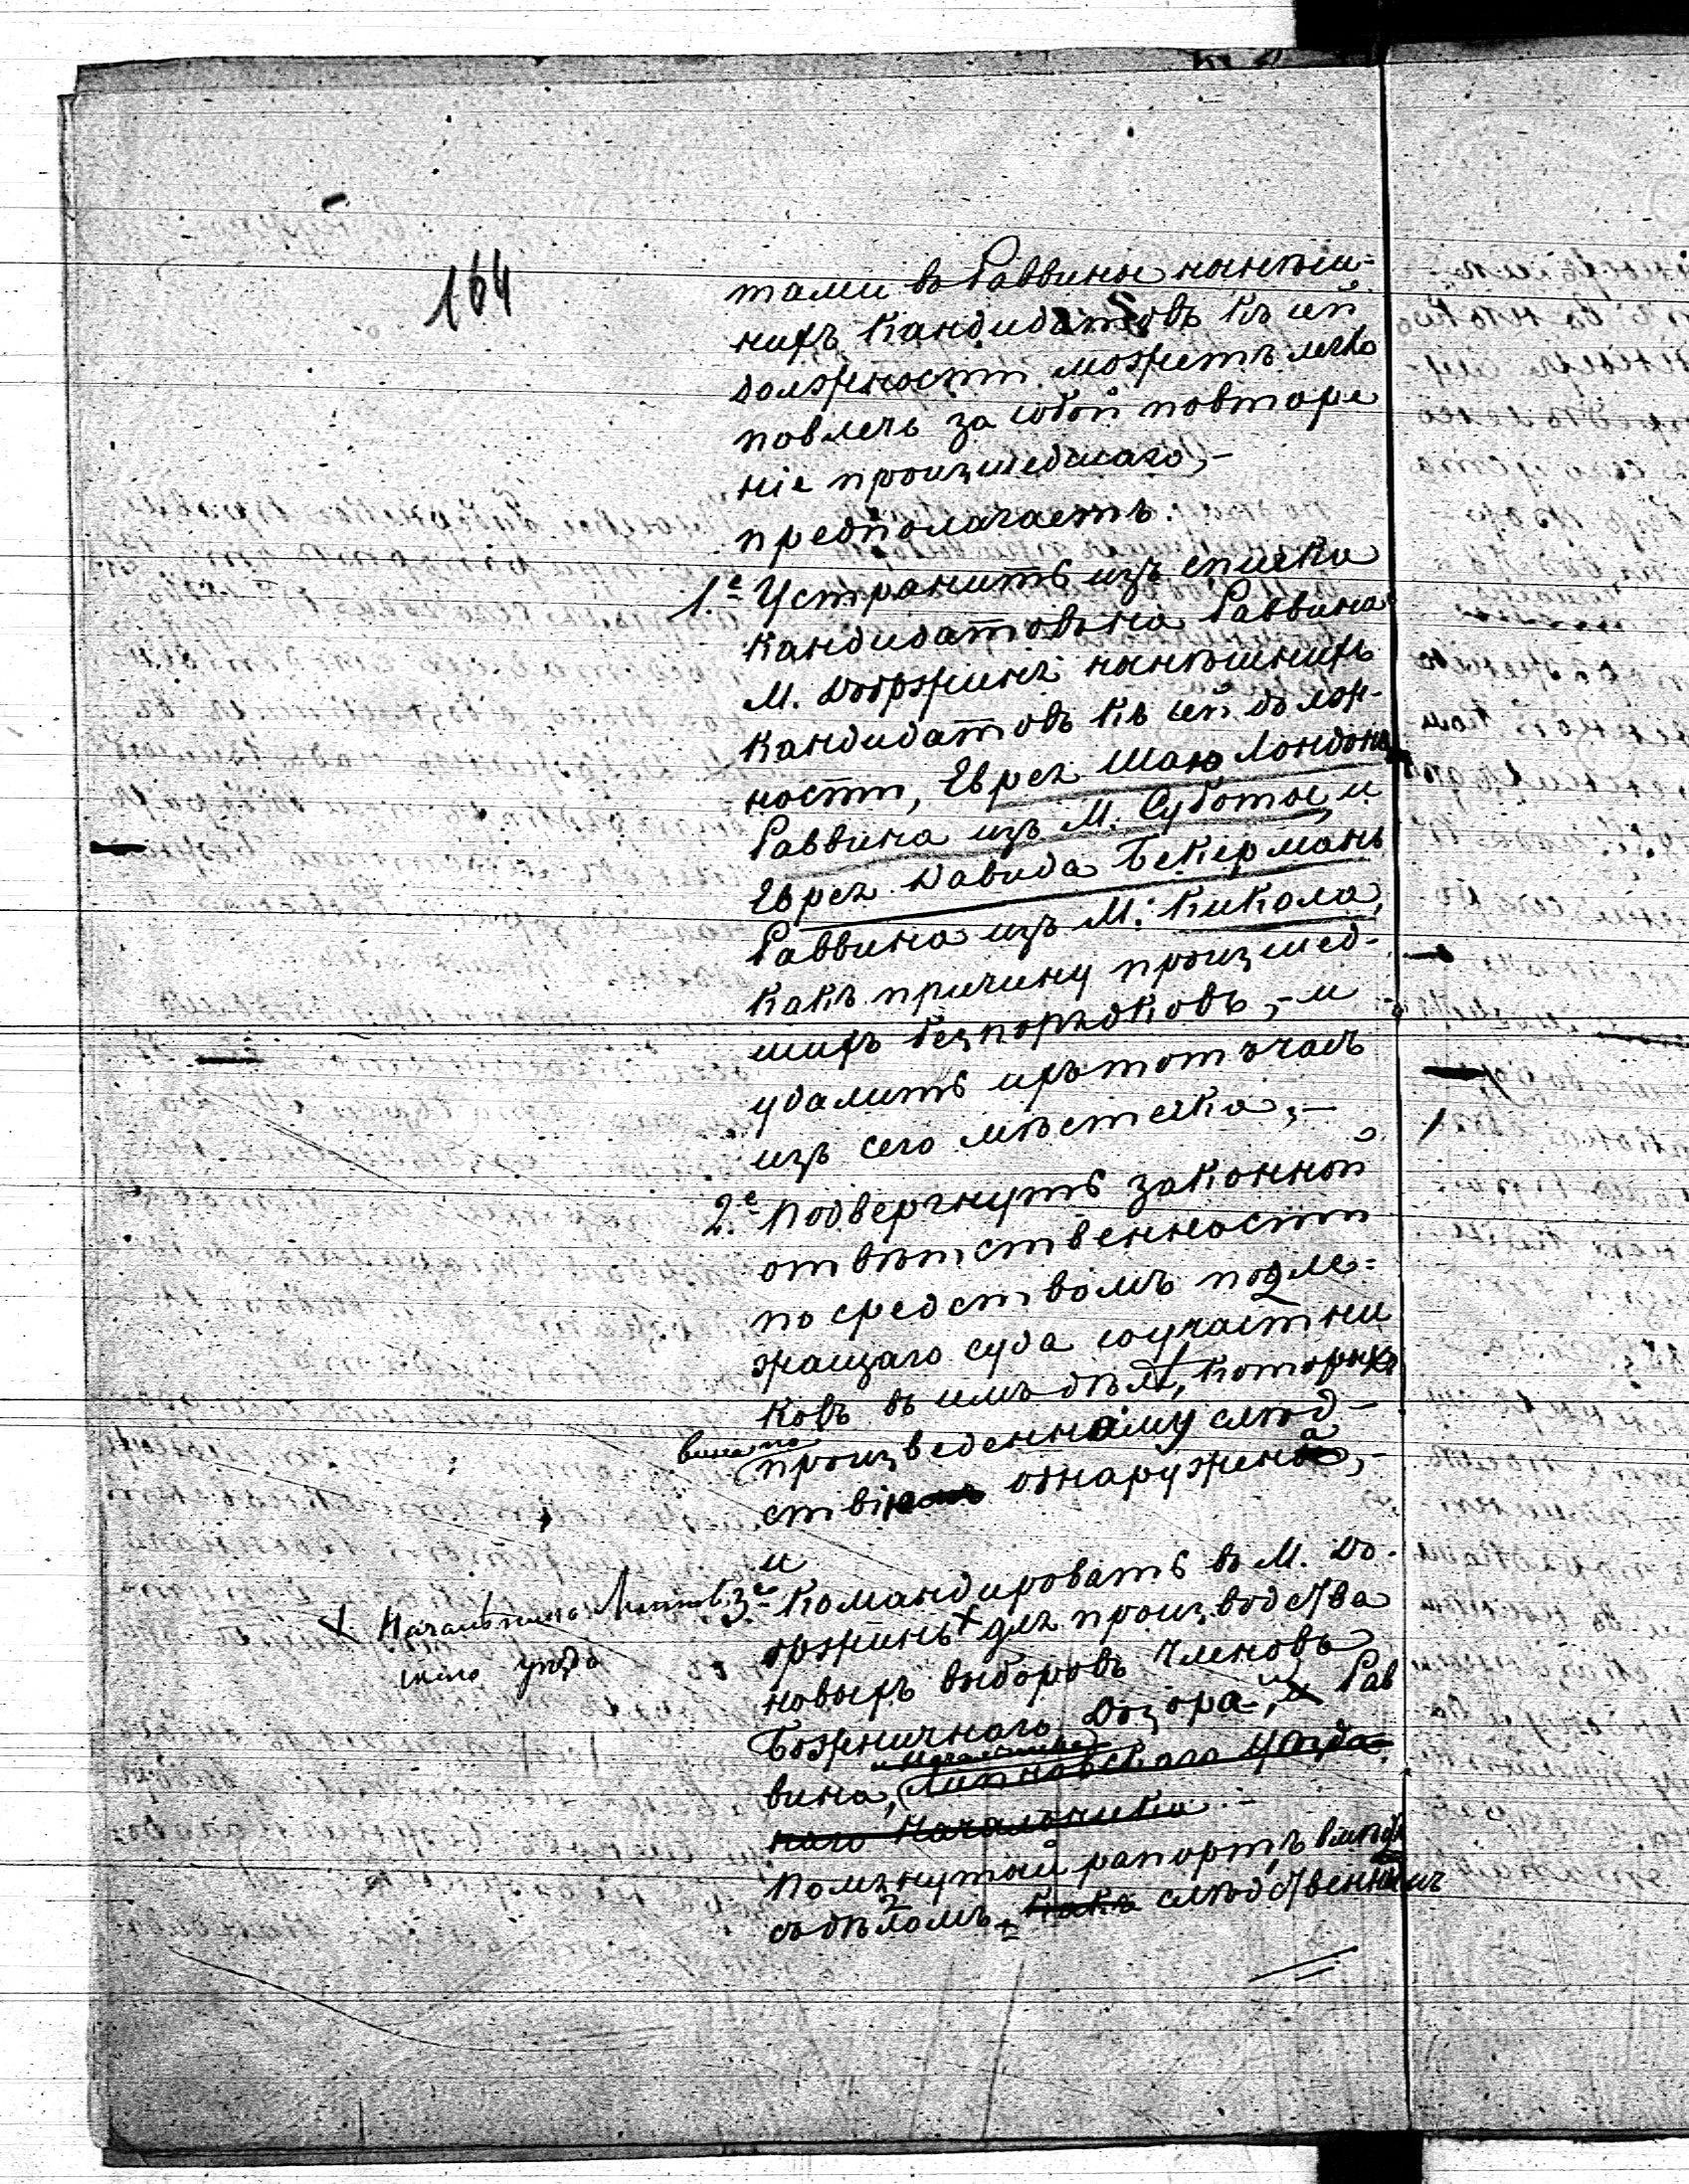 164
тами въ Раввины нынѣш-
нихъ кандидатовъ къ сей
должности можетъ легко
повлечь за собой повторе
ніе произшедшаго, –
предполагаетъ.
1.е Устранить изъ списка
кандидатовъ на Раввина
М. Добржинь нынѣшнихъ
кандидатовъ къ сей долж-
ности, Еврея Шаю Лондона
Раввина изъ М. Суботы, и
Еврея Давида Бекерманъ
Раввина изъ М. Кикола,
какъ причину произшед-
шихъ безпорядковъ, – и
удалить ихъ тотъ часъ
изъ сего мѣстечка, –
2.е Подвергнуть законной
отвѣтственности
посредствомъ подле-
жащаго суда соучастни
ковъ въ семъ дѣлѣ, которыхъ
вина по
произведенному слѣд-
ствію обнаружена, –
и
3.е Командировать въ М. До-
бржинь × для производства
× Начальника Липнов-
скаго уѣзда
новыхъ выборовъ Членовъ
Божничнаго Дозора, и Рав
вина, Липновскаго уѣзда-
наго Начальника. –
Помянутый рапортъ вмѣстѣ
съ дѣломъ какъ слѣдственнымъ